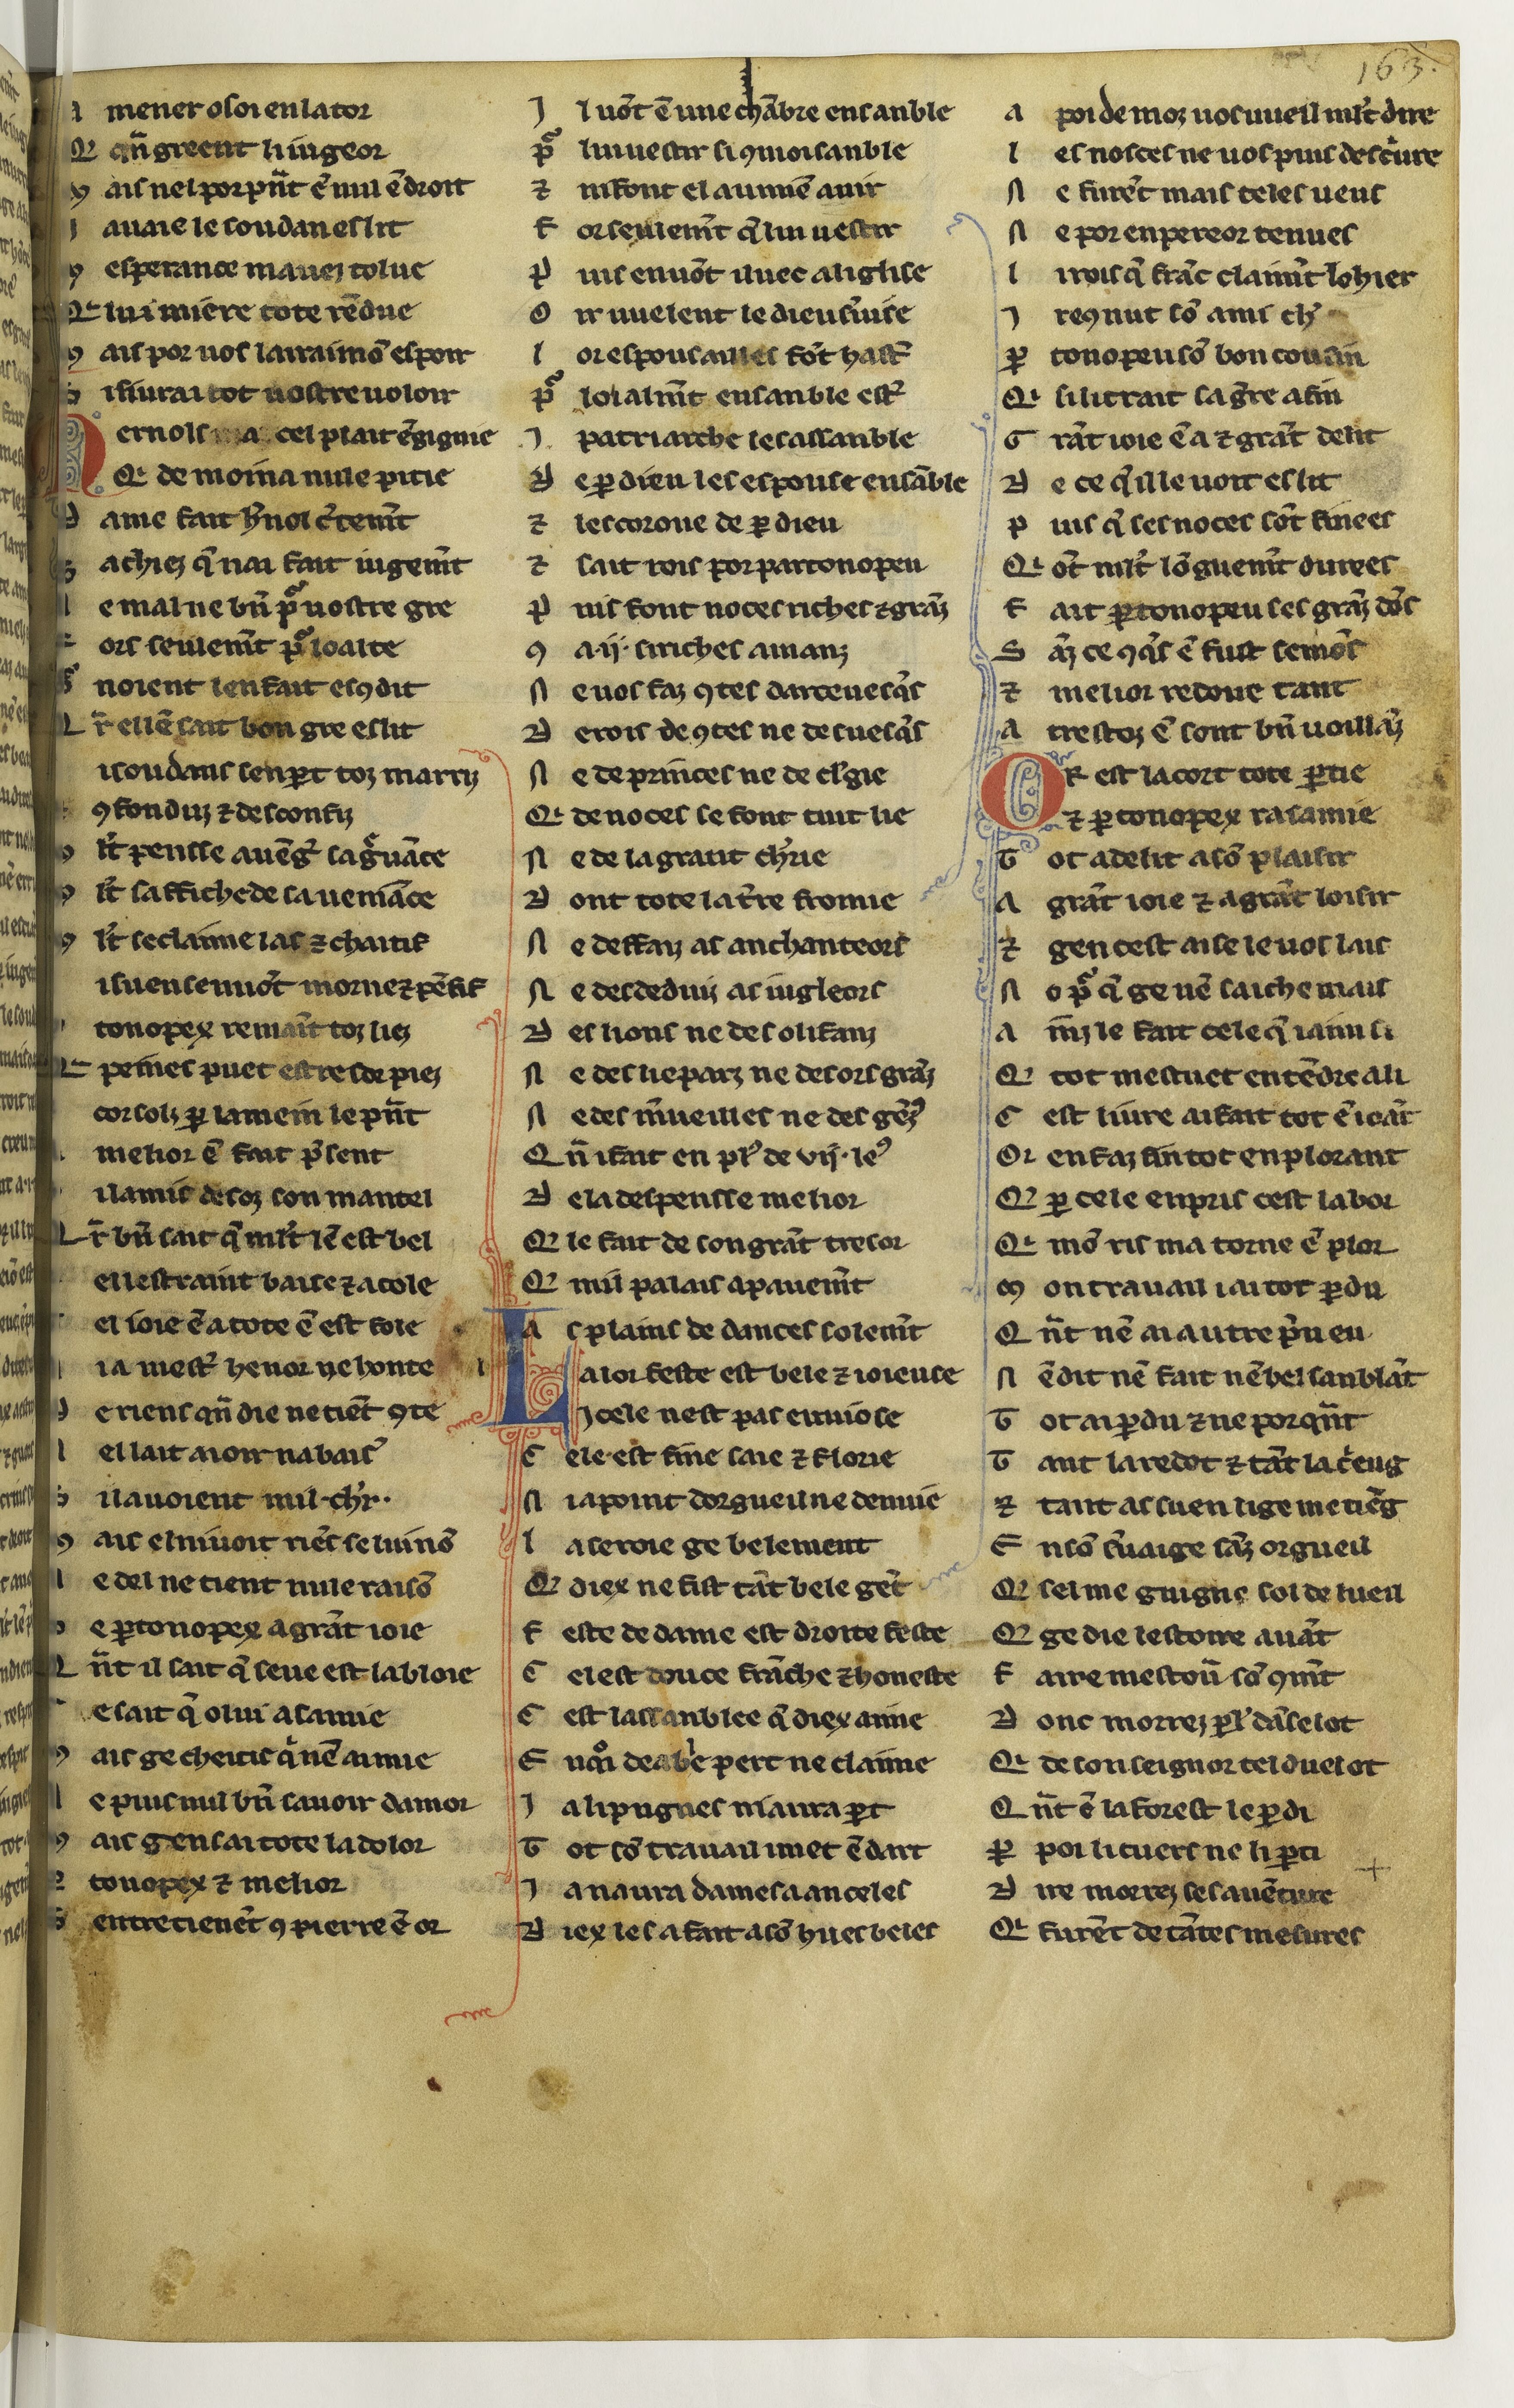 163.
A mener o soi en la tor
Q̄ qñ greent li iugeor
M ais nel por pñt ē nul ēdroit
J auaie le soudan eslit
M esperance mauez tolue
Q lui miere tote rēdue
M ais por uos lairai mō espoir
S i siurai tot uostre uoloir
ernols ma cel plait ēgignie
Q de moi na nule pitie
D ame fait h̄nol c̄temt̄
S achiez q̄ nai fait iugemt̄
e mal ne bn̄ pͣ uostre gre
F ors seulemt̄ pͣ loalte
S noient len fait esꝯdit
Q r̄ ellē sait bon gre eslit
i soudans senꝑt toz marriz
ꝯfonduz ⁊ desconfiz
M lt̄ pensse auēḡ sa gͣuāce
M lt̄ saffiche de sa uenIāce
M lt̄ se claime las ⁊ chaitif
il uen senuōt mornez ⁊ pēsis
tonopex remaīt toz liez
Q peines puet estre sor piez
cor solz ꝑ la mein le pñt
melior ē fait p̄sent
il a mis desoz son mantel
Q r̄ bn̄ sait q̄ mlt̄ lē est bel
el lestraint baise ⁊ acole
el ioie ē a tote ē est fole
ia mest̄ henor ne honte
D e riens qñ die ne tiēt ꝯte
el lait aioir na bais̄
S il auoient mil ch'r
M ais el ni uoit riēs se lui nō
e del ne tient nule raisō
e ꝑtonopex a grāt ioie
Q ñt il sait q̄ seue est la bloie
e sait q̄ o lui a samie
M ais ge cheitis q̄ nē ai mie
e puis nul bn̄ sauoir damor
M ais gen sai tote la dolor
tonopex ⁊ melior
S entretienēt ꝯ pierre ē or
J l uōt ē une chābre ensanble
Pͣ lui uestir si ꝯ moi sanble
⁊ ni font el au miē auir
F or seulemt̄ q̄ lui uestir
P uis en uōt iluec a liglise
O ir uuelent le dieu s̄uise
L or espousailles fōt hast̄
Pͣ loialmt̄ ensanble est̄
J patriarche les assanble
D e ꝑ dieu les espouse ensāble
⁊ les corone de ꝑ dieu
⁊ sait rois por partonopeu
P uis font noces riches ⁊ grāz
ꝯ a .ij. si riches amanz
N e uos faz ꝯtes darceuesq̄s
D e rois de ꝯtes ne de euesq̄s
N e de princes ne de cl̄gie
Q de noces se font tuit lie
N e de la grant ch'rie
D ont tote la t̄re fromie
N e deffaiz as anchanteors
N e des deduiz as iugleors
D es lions ne des olifanz
N e des liepars ne des ors grāz
N e des m̄ueilles ne des gēz
Q ñ i fait en pl̄ de vij. le
D e la despensse melior
Q le fait de son grāt tresor
Q mil palais a pauemt̄
A s plains de dances solemt̄
La ior feste est bele ⁊ ioieuse
Jcele nest pas enuiose
C ele est fine saie ⁊ florie
N ia point dorgueil ne denuie
L a seroie ge belement
Q diex ne fist tāt bele gēt
F este de dame est droite feste
C el est douce frāche ⁊ honeste
C est lassanblee q̄ diex aime
E n q̄ deable pert ne claime
J a li pugnes ni aura ꝑt
T ot sō trauail i met ē dart
J a naura dames a anceles
D iex les a fait a sō hues beles
A poi de moz uos uueil mlt̄ dire
L es noces ne uos puis descͥure
N e furēt mais teles ueus
N e por enpereor tenues
L i rois q̄ frāc claimt̄ lohier
J reꝯnut sō ami ch'r
P tonopeu sō bon cousin
Q si li trait sa gr̄re a fin
G rāt ioie ē a ⁊ grāt delit
D e ce q̄l le uoit eslit
P uis q̄ ses noces sōt finees
Q ōt mlt̄ lōguemt̄ durees
F ait ꝑtonopeu ses grāz dōs
S āz ce ꝯq̄s ē fust semōs
⁊ melior redone tant
A trestoz ē sont bn̄ uoillāz
Or est la cort tote ꝑtie
⁊ ꝑtonopex ra samie
T ot a delit a sō plaisir
A grāt ioie ⁊ a grāt loisir
⁊ gen cest aise le uos lais
N o pͣ q̄ ge nē saiche mais
A m̄z le fait cele q̄ iaim si
Q tot mestuet entēdre a li
C est liure ai fait tot ē ioāt
Or en faz fin tot en plorant
Q ꝑ cele enpris cest labor
Q mō ris ma torne ē plor
M on trauail iai tot ꝑdu
Q ñt nē ai autre p̄u eu
N ē dit nē fait nē bel sanblāt
T ot ai ꝑdu ⁊ ne porqñt
T ant la redot ⁊ tāt la cͥeng
⁊ tant as suen lige me tiēg
E n sō s̄uaige sāz orgueil
Q sel me guigne sol de lueil
Q ge die lestoire auāt
F aire mestou̅ sō ꝯmt̄
D onc morrez pl̄ danselot
Q de son seignor tel duel ot
Q ñt ē la forest le ꝑdi
P por li cuers ne li ꝑti
D ire morrez ses auēture
Q furēt de tātes mesures